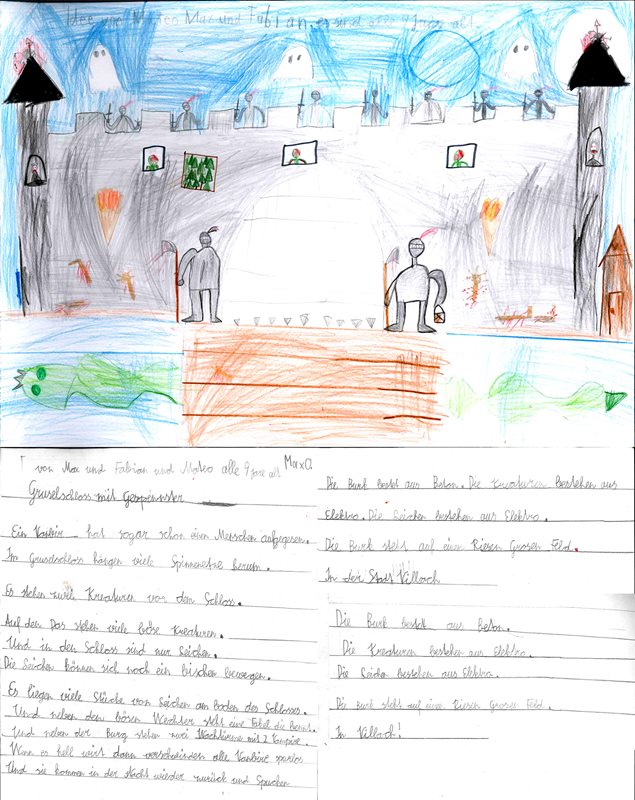 Idee von Mateo Max und Fabian, es sind alle 9 Jare alt.
von Max und Fabian und Mateo alle 9 jare alt
Max O.
Gruselschloss mit Gespenster
Ein hat sogar schon einen Menschen aufgegesen.
Im Gruselschloss hängen viele Spinnennetze herum.
Es stehen zwei Kreaturen vor dem Schloss.
Auf den Das stehen viele böse Kreaturen.
Und in den Schloss sind nur Leichen.
Die Leichen können sich noch ein bischen bewegen.
Es liegen viele Stücke von Leichen am Boden des Schlosses.
Und neben den bösen Wechter steht eine die
Und neben der Burg stehen zwei Wachtürme mit 2 Vampire.
Wann es hell wirt dann verschwinden alle Vanbire spurlos
Und sie kommen in der Nacht wieder zurück und Spucken
Die Burk bestet aus Beton. Die Kreaturen Bestehen aus
Elektro. Die Leichen bestehen aus Elektro.
Die Burk steht auf einen Riesen Grosen Feld.
In der Stadt Villach
Die Burk bestet aus Beton.
Die Kreaturen bestehen aus Elektro.
Die Leichen bestehen aus Elektro.
Die burk steht auf einen Riesen Grosen Feld.
In Villach!